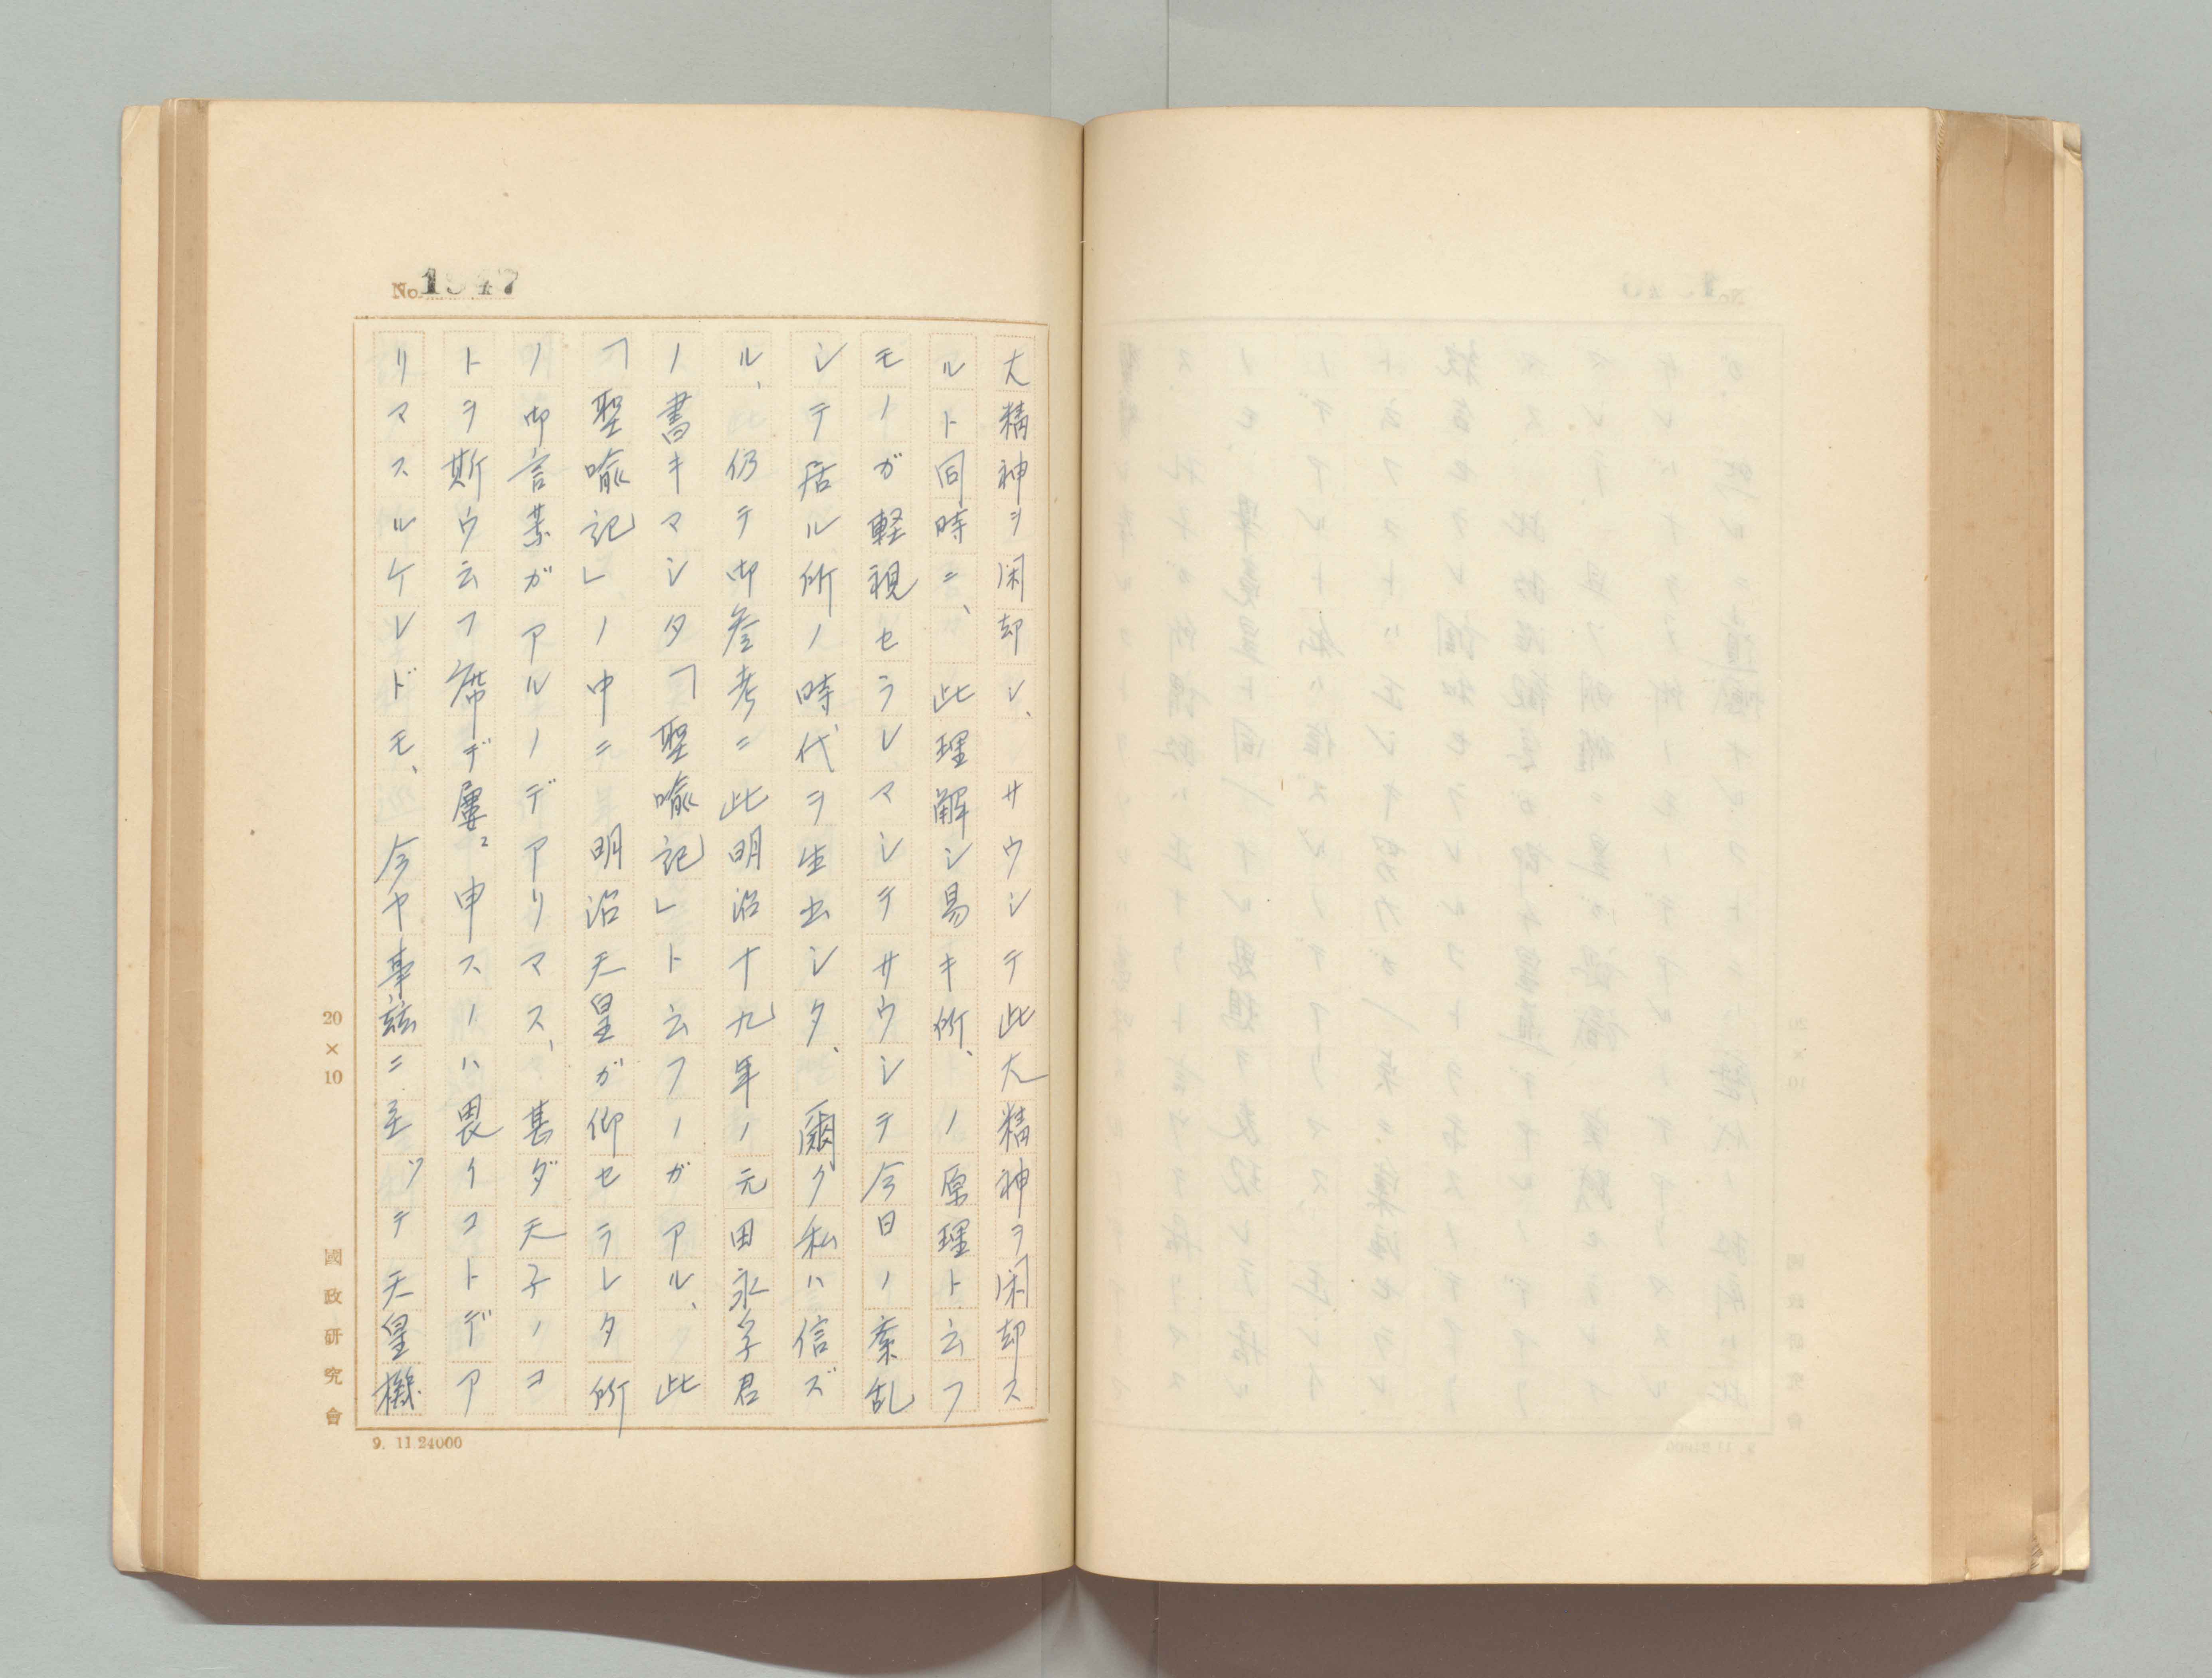 No. 1947
大精神ヲ閑却シ、サウシテ此大精神ヲ閑却ス
ルト同時ニ、此理解シ易キ所、ノ原理ト云フ
モノガ軽視セラレマシテサウシテ今日ノ紊乱
シテ居ル所ノ時代ヲ生出シタ、爾ク私ハ信ズ
ル、仍テ御参考ニ此明治十九年ノ元田永孚君
ノ書キマシタ「聖喩記」ト云フノガアル、此
「聖喩記」ノ中ニ明治天皇ガ仰セラレタ所
ノ御言葉ガアルノデアリマス、甚ダ天子ノコ
トヲ斯ウ云フ席デ屢〻申スノハ畏イコトデア
リマスルケレドモ、今ヤ事玆ニ至ツテ天皇機
20×10
國政研究會
9. 11 24000